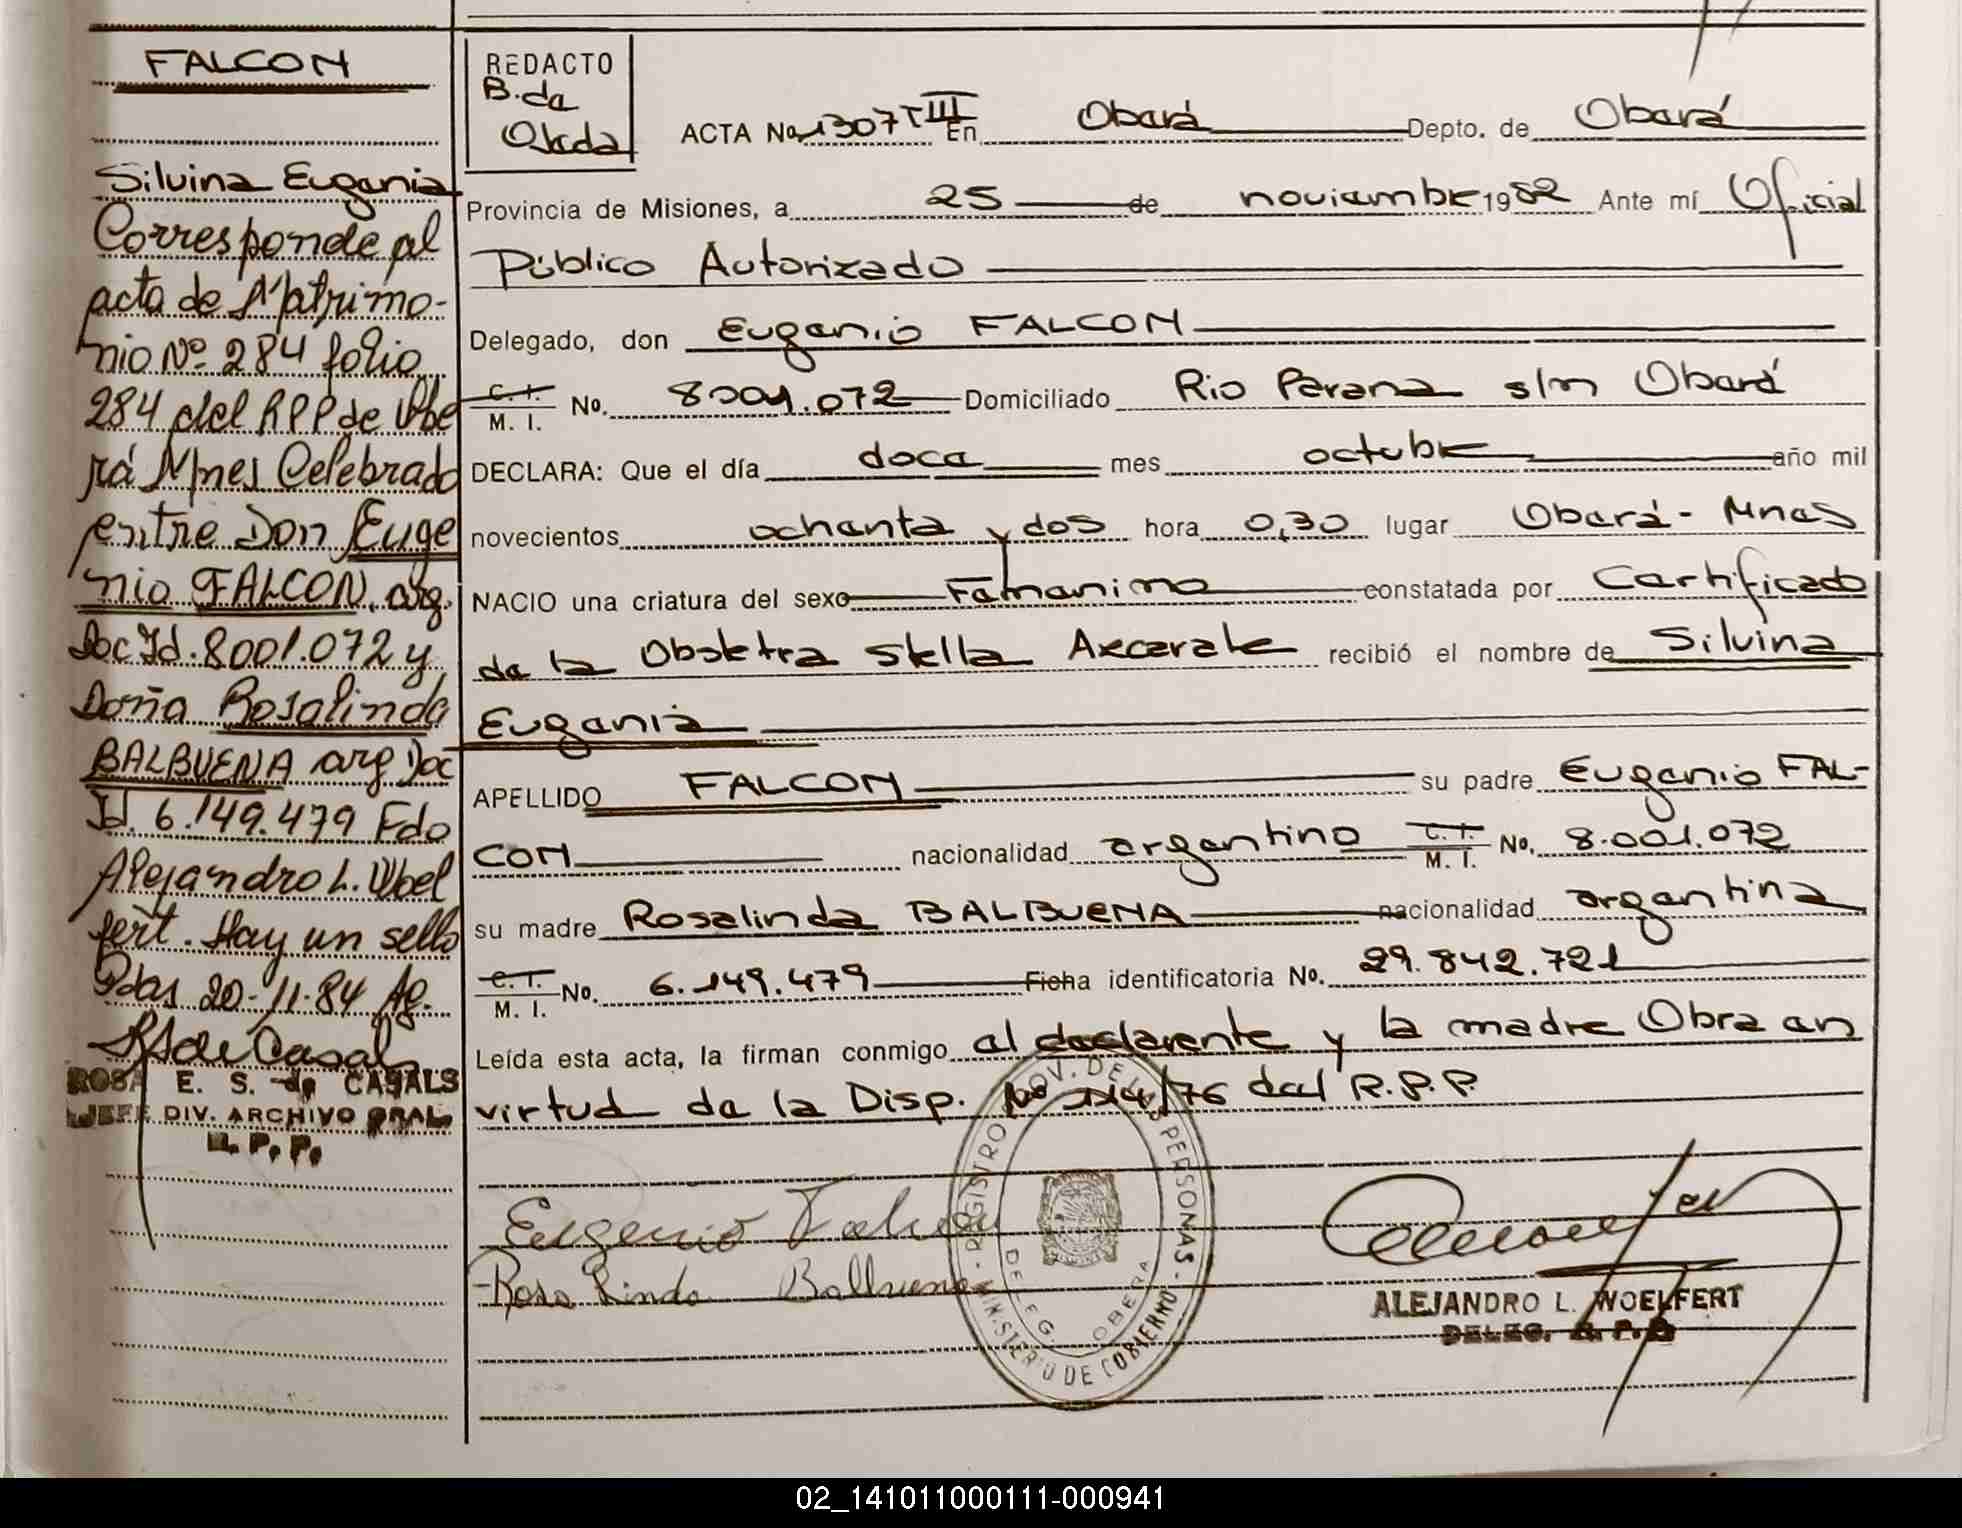 FALCON
Silvina Eugenia
Corresponde al
acta de Matrimo-
nio Nº 284 folio
284 del RPP de Obe
rá Mnes Celebrado
entre Don Euge
nio FALCON, arg.
Doc Id. 8001.072 y
Doña Rosalinda
BALBUENA arg Doc
Id. 6.149.479 Fdo
Alejandro L. Wbel
fert. Hay un sello
Pdas 20-11-84
ROSA E. S. de CASALS
JEFE DIV. ARCHIVO GRAL.
R. P. P.
REDACTO
B. de
Ojeda
ACTA No. 1307 T III En Oberá Depto. de Oberá
Provincia de Misiones, a 25 de noviembre 1982 Ante mí Oficial
Público Autorizado
Delegado, don Eugenio FALCON
C. I.
M. I. No. 8001.072 Domiciliado Rio Parana s/n Oberá
DECLARA: Que el día doce mes octubre año mil
novecientos ochenta y dos hora 0,30 lugar Oberá - Mnes
NACIO una criatura del sexo Femenino constatada por Certificado
de la Obstetra Stella Azcarate recibió el nombre de Silvina
Eugenia
APELLIDO FALCON su padre Eugenio FAL-
CON nacionalidad argentino C. I.
M. I. No. 8.001.072
su madre Rosalinda BALBUENA nacionalidad argentina
C. I.
M. I. No. 6.149.479 Ficha identificatoria No. 29.842.721
Leída esta acta, la firman conmigo el declarante y la madre Obra en
virtud de la Disp. Nº /76 del R.P.P.
Eugenio Falcon
Rosa Linda Balbuena
REGISTRO PROV. DE LAS PERSONAS - MINISTERIO DE GOBIERNO
DELEG. OBERA
ALEJANDRO L. WOELFERT
DELEG. R. P. P.
02_141011000111-000941